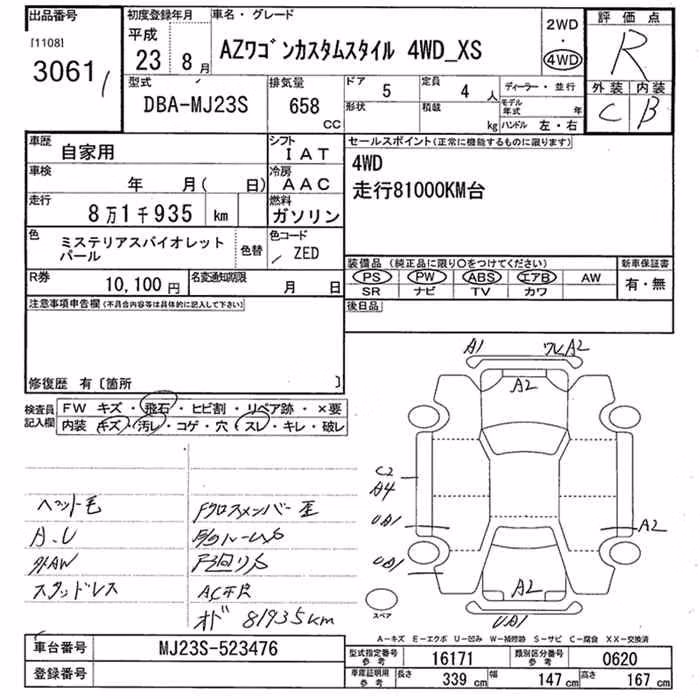 出品番号
[1108]
3061
初度登録年月
平成
23 8月
車名・グレード
AZワゴンカスタムスタイル 4WD_XS
2WD
・
4WD
評価点
R
外装 内装
C B
型式
DBA-MJ23S
排気量
658
CC
ドア
5
定員
4 人
形状
積載
kg
ディーラー・並行
モデル年式 年
ハンドル 左・右
車歴
自家用
シフト
IAT
車検
年 月( 日)
冷房
AAC
走行
8万1千935 km
燃料
ガソリン
色
ミステリアスバイオレット
パール
色替
色コード
ZED
R券
10,100 円
名変通知期限
月 日
セールスポイント(正常に機能するものに限ります)
4WD
走行81000KM台
装備品 (純正品に限り○をつけてください)
PS PW ABS エアB AW
SR ナビ TV カワ
新車保証書
有・無
後日品
注意事項申告欄(不具合内容等は具体的に記入して下さい)
修復歴 有〔箇所 〕
検査員
記入欄
FW キズ・飛石・ヒビ割・リペア跡・×要
内装 キズ・汚レ・コゲ・穴・スレ・キレ・破レ
ヘット毛
A.U
外AW
スタッドレス
Fクロスメンバー歪
F下廻リS
AC不良
オド 81935km
A1
ワレA2
A2
C2
A4
UA1
A2
UA1
A2
UA1
スペア
A-キズ E-エクボ U-凹み W-補修跡 S-サビ C-腐食 XX-交換済
車台番号
MJ23S-523476
登録番号
型式指定番号
参考
16171
類別区分番号
参考
0620
車庫証明用
参考
長さ
339 cm
幅
147 cm
高さ
167 cm